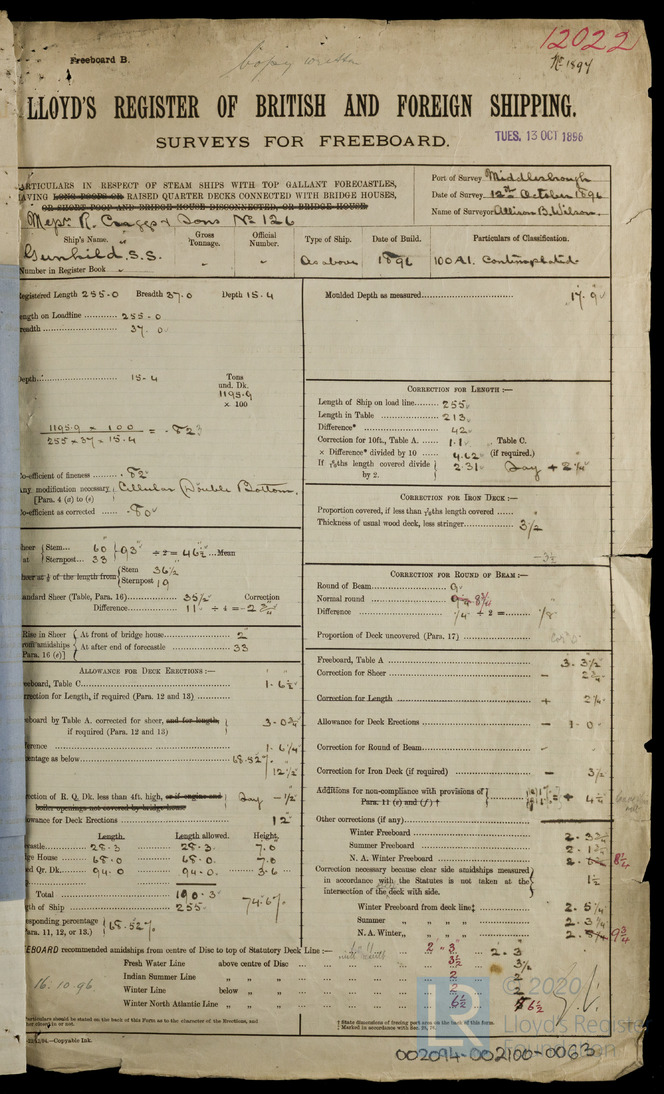 12022
Freeboard B.
copy written
No 1894
LLOYD'S REGISTER OF BRITISH AND FOREIGN SHIPPING.
SURVEYS FOR FREEBOARD.
TUES. 13 OCT 1896
PARTICULARS IN RESPECT OF STEAM SHIPS WITH TOP GALLANT FORECASTLES,
HAVING LONG POOPS OR RAISED QUARTER DECKS CONNECTED WITH BRIDGE HOUSES,
OR SHORT POOP AND BRIDGE HOUSE DISCONNECTED, OR BRIDGE HOUSE.
Port of Survey Middlesbrough
Date of Survey 12th October 1896
Name of Surveyor Allison B. Wilson.
Messrs R. Craggs & Sons No 126
Ship's Name. Gross Tonnage. Official Number. Type of Ship. Date of Build. Particulars of Classification.
Gunhild S.S. " " As above 1896 100 A1. Contemplated
Number in Register Book
Registered Length 255.0 Breadth 37.0 Depth 15.4
Length on Loadline 255.0
Breadth 37.0
Depth 15.4
Tons und. Dk.
1195.9
× 100
1195.9 × 100
255 × 37 × 15.4
= .823
Co-efficient of fineness .82
Any modification necessary [Para. 4 (a) to (e)] Cellular Double Bottom.
Co-efficient as corrected .80
Sheer at { Stem 60 Sternpost 33 } 93 ÷ 2 = 46½ Mean
Sheer at ⅛ of the length from { Stem 36½ Sternpost 19
Standard Sheer (Table, Para. 16) 35½ Correction
Difference 11 ÷ 4 = -2¾
Rise in Sheer from amidships [Para. 16 (e)]
At front of bridge house 2
At after end of forecastle 33
ALLOWANCE FOR DECK ERECTIONS:—
Freeboard, Table C. 1-6½
Correction for Length, if required (Para. 12 and 13)
Freeboard by Table A. corrected for sheer, and for length, if required (Para. 12 and 13) 3-0¾
Difference 1-6¼
Percentage as below 68.52%
12½
Correction of R. Q. Dk. less than 4ft. high, or if engine and boiler openings not covered by bridge house Say -½
Allowance for Deck Erections 12
Length. Length allowed. Height.
Forecastle 28.3 28.3 7.0
Bridge House 68.0 68.0 7.0
Raised Qr. Dk. 94.0 94.0 3.6
Total 190.3
Length of Ship 255
74.6%
Corresponding percentage [Para. 11, 12, or 13.] 68.52%
Moulded Depth as measured 17.9
CORRECTION FOR LENGTH:—
Length of Ship on load line 255
Length in Table 213
Difference* 42
Correction for 10ft., Table A. 1.1 Table C.
× Difference* divided by 10 4.62 (if required.)
If 6/10ths length covered divide by 2. 2.31 Say + 2¼
CORRECTION FOR IRON DECK:—
Proportion covered, if less than 7/10ths length covered
Thickness of usual wood deck, less stringer 3½
-3½
CORRECTION FOR ROUND OF BEAM:—
Round of Beam 9
Normal round 8¾
Difference ¼ ÷ 2 = ⅛
Proportion of Deck uncovered (Para. 17)
Freeboard, Table A 3.3½
Correction for Sheer - 2¾
Correction for Length + 2¼
Allowance for Deck Erections - 1.0
Correction for Round of Beam
Correction for Iron Deck (if required) - 3½
Additions for non-compliance with provisions of Para. 11 (e) and (f) † + 4½
Other corrections (if any)
Winter Freeboard 2.3¾
Summer Freeboard 2.1¾
N. A. Winter Freeboard 8¼
Correction necessary because clear side amidships measured in accordance with the Statutes is not taken at the intersection of the deck with side. 1½
Winter Freeboard from deck line‡ 2.5¼
Summer " " " " 2.3¼
N. A. Winter " " " 9¾
FREEBOARD recommended amidships from centre of Disc to top of Statutory Deck Line:— 2" 3" 2.3
Fresh Water Line above centre of Disc 3½ 3½
Indian Summer Line " " " 2 2
Winter Line below " " 2 2
Winter North Atlantic Line " " " 6½ 6½
16.10.96.
Particulars should be stated on the back of this Form as to the character of the Erections, and
† State dimensions of freeing port area on the back of this form.
‡ Marked in accordance with
—Copyable Ink.
© 2020
Lloyd's Register
Foundation
LR
002094-002100-0063